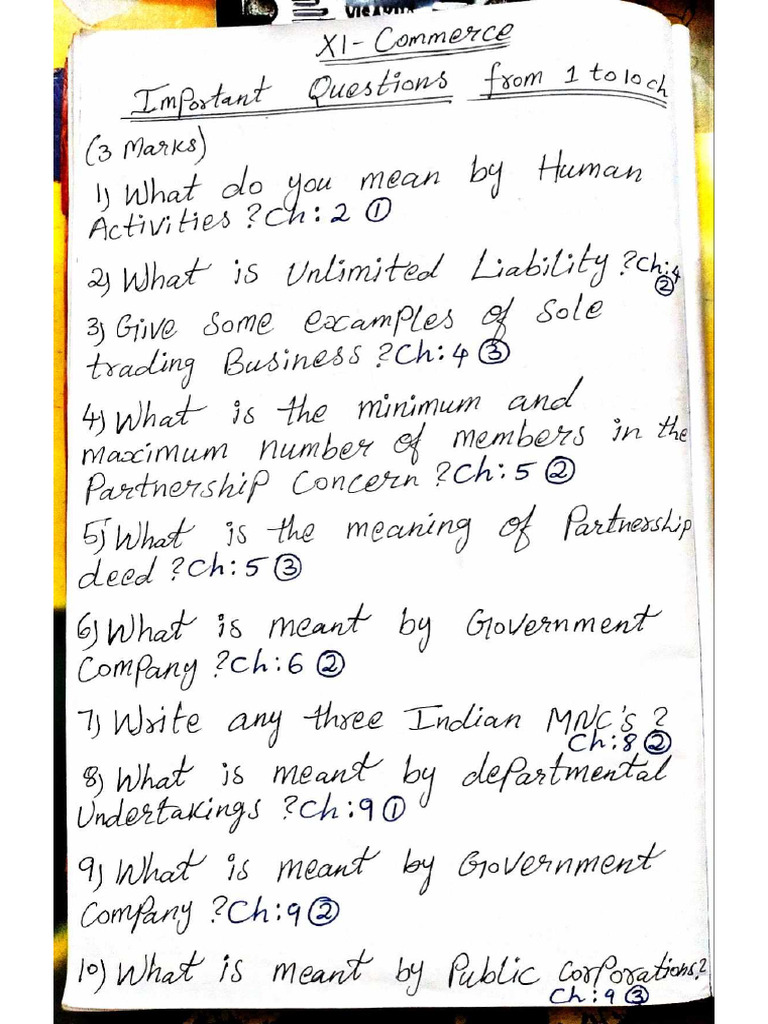 XI-Commerce
Important Questions from 1 to 10 ch
(3 Marks)
1) What do you mean by Human
Activities? Ch: 2 ①
2) What is Unlimited Liability? Ch: 4
②
3) Give Some examples of Sole
trading Business? Ch: 4 ③
4) What is the minimum and
maximum number of members in the
Partnership Concern? Ch: 5 ②
5) What is the meaning of Partnership
deed? Ch: 5 ③
6) What is meant by Government
Company? Ch: 6 ②
7) Write any three Indian MNC's?
Ch: 8 ②
8) What is meant by departmental
Undertakings? Ch: 9 ①
9) What is meant by Government
Company? Ch: 9 ②
10) What is meant by Public Corporations?
Ch: 9 ③